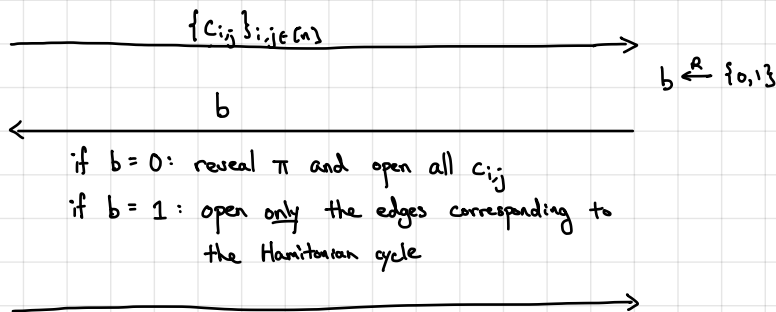 {c_{i,j}}_{i,j∈[n]}
b ←ᴿ {0,1}
b
if b = 0: reveal π and open all c_{i,j}
if b = 1: open only the edges corresponding to
the Hamitonian cycle